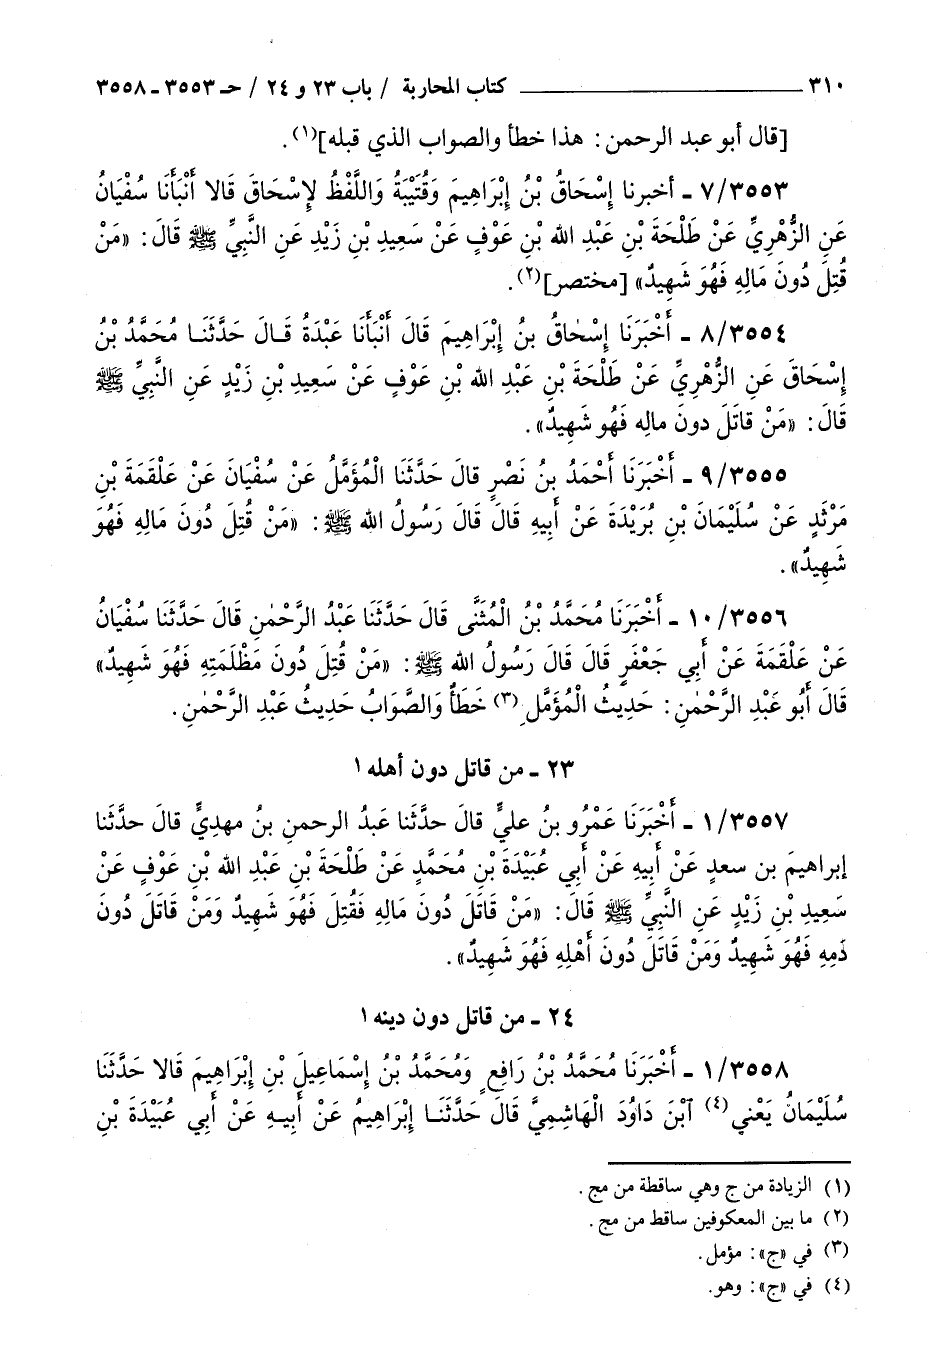 ٣١٠ ــــــــــــ كتاب المحاربة / باب ٢٣ و ٢٤ / حـ ٣٥٥٣ ـ ٣٥٥٨
[قال أبو عبد الرحمن: هذا خطأ والصواب الذي قبله](١).
٧/٣٥٥٣ ـ أخبرنا إِسْحَاقُ بْنُ إِبْرَاهِيمَ وَقُتَيْبَةُ وَاللَّفْظُ لِإِسْحَاقَ قَالا أَنْبَأَنَا سُفْيَانُ
عَنِ الزُّهْرِيِّ عَنْ طَلْحَةَ بْنِ عَبْدِ الله بْنِ عَوْفٍ عَنْ سَعِيدِ بْنِ زَيْدٍ عَنِ النَّبِيِّ ﷺ قَالَ: «مَنْ
قُتِلَ دُونَ مَالِهِ فَهُوَ شَهِيدٌ» [مختصر](٢).
٨/٣٥٥٤ ـ أَخْبَرَنَا إِسْحَاقُ بنُ إِبْرَاهِيمَ قَالَ أَنْبَأَنَا عَبْدَةُ قَالَ حَدَّثَنَا مُحَمَّدُ بْنُ
إِسْحَاقَ عَنِ الزُّهْرِيِّ عَنْ طَلْحَةَ بْنِ عَبْدِ الله بْنِ عَوْفٍ عَنْ سَعِيدِ بْنِ زَيْدٍ عَنِ النَّبِيِّ ﷺ
قَالَ: «مَنْ قاتَلَ دونَ مالِه فَهُو شَهِيدٌ».
٩/٣٥٥٥ ـ أَخْبَرَنَا أَحْمَدُ بنُ نَصْرٍ قالَ حَدَّثَنَا الْمُؤَمَّلُ عَنْ سُفْيَانَ عَنْ عَلْقَمَةَ بْنِ
مَرْثَدٍ عَنْ سُلَيْمَانَ بْنِ بُرَيْدَةَ عَنْ أَبِيهِ قَالَ قَالَ رَسُولُ الله ﷺ: «مَنْ قُتِلَ دُونَ مَالِهِ فَهُوَ
شَهِيدٌ».
١٠/٣٥٥٦ ـ أَخْبَرَنَا مُحَمَّدُ بْنُ الْمُثَنَّى قَالَ حَدَّثَنَا عَبْدُ الرَّحْمٰنِ قَالَ حَدَّثَنَا سُفْيَانُ
عَنْ عَلْقَمَةَ عَنْ أَبِي جَعْفَرٍ قَالَ قَالَ رَسُولُ الله ﷺ: «مَنْ قُتِلَ دُونَ مَظْلَمَتِهِ فَهُوَ شَهِيدٌ»
قَالَ أَبُو عَبْدِ الرَّحْمٰنِ: حَدِيثُ الْمُؤَمَّلِ(٣) خَطَأٌ وَالصَّوَابُ حَدِيثُ عَبْدِ الرَّحْمٰنِ.
٢٣ ـ من قاتل دون أهله ١
١/٣٥٥٧ ـ أَخْبَرَنَا عَمْرُو بنُ عليٍّ قالَ حدَّثَنا عَبدُ الرحمنِ بنُ مهديٍّ قالَ حدثَنا
إبراهيمَ بن سعدٍ عَنْ أَبِيهِ عَنْ أَبِي عُبَيْدَةَ بْنِ مُحَمَّدٍ عَنْ طَلْحَةَ بْنِ عَبْدِ الله بْنِ عَوْفٍ عَنْ
سَعِيدِ بْنِ زَيْدٍ عَنِ النَّبِيِّ ﷺ قَالَ: «مَنْ قَاتَلَ دُونَ مَالِهِ فَقُتِلَ فَهُوَ شَهِيدٌ وَمَنْ قَاتَلَ دُونَ
دَمِهِ فَهُوَ شَهِيدٌ وَمَنْ قَاتَلَ دُونَ أَهْلِهِ فَهُوَ شَهِيدٌ».
٢٤ ـ من قاتل دون دينه ١
١/٣٥٥٨ ـ أَخْبَرَنَا مُحَمَّدُ بْنُ رَافِعٍ وَمُحَمَّدُ بْنُ إِسْمَاعِيلَ بْنِ إِبْرَاهِيمَ قَالا حَدَّثَنَا
سُلَيْمَانُ يَعْنِي(٤) ٱبْنَ دَاوُدَ الْهَاشِمِيَّ قَالَ حَدَّثَنَا إِبْرَاهِيمُ عَنْ أَبِيهِ عَنْ أَبِي عُبَيْدَةَ بْنِ
(١) الزيادة من ج وهي ساقطة من مج.
(٢) ما بين المعكوفين ساقط من مج.
(٣) في «ج»: مؤمل.
(٤) في «ج»: وهو.